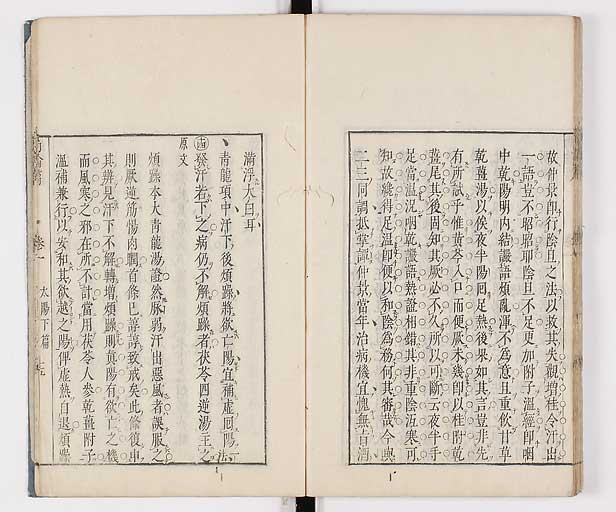 故仲景卽行陰旦之法以救其失觀增桂令汗出
一語豈不昭昭耶陰旦不足更加附子溫經卽咽
中乾陽明內結譫語煩亂渾不為意且重飲甘草
乾薑湯以俟夜半陽回足熱後果如其言豈非先
有所試乎惟黃芩入口而便厥未幾卽以桂附乾
薑尾其後固知其厥必不久所以可斷云夜半手
足當溫況咽乾譫語熱證相錯其非重陰冱寒可
知故纔得足溫卽便以和陰為務何其審哉今與
二三同調抵掌譚仲景當年治病機宜愧無青酒
滿浮大白耳
青龍項中汗下後煩躁將欲亡陽宜補虛回陽一法
原文 發汗若下之病仍不解煩躁者茯苓四逆湯主之
煩躁本大青龍湯證然脈弱汗出惡風者誤服之
則厥逆筋惕肉瞤首條已諄諄致戒矣此條復申
其辨見汗下不解轉增煩躁則眞陽有欲亡之機
而風寒之邪在所不計當用茯苓人參乾薑附子
溫補兼行以安和其欲越之陽俾虛熱自退煩躁
卷一
太陽下篇